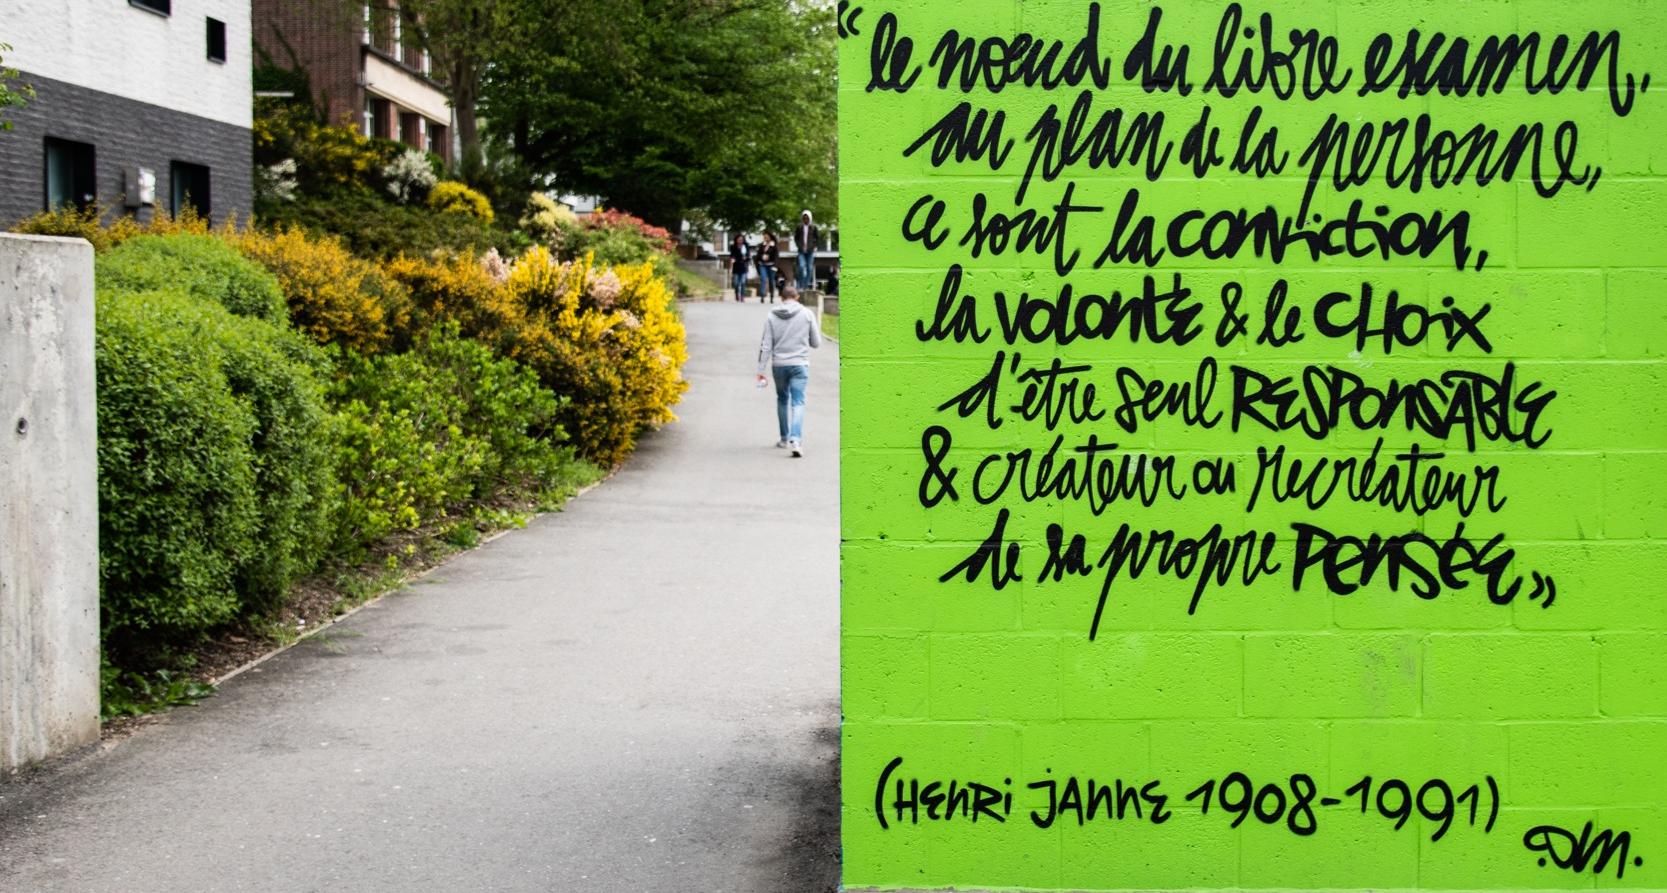 “le nœud du libre examen,
au plan de la personne,
ce sont la conviction,
la volonté & le CHoix
d'être seul RESPonSABLE
& créateur ou recréateur
de sa propre Pensée„
(HEnRi JAnnE 1908-1991)
DM.